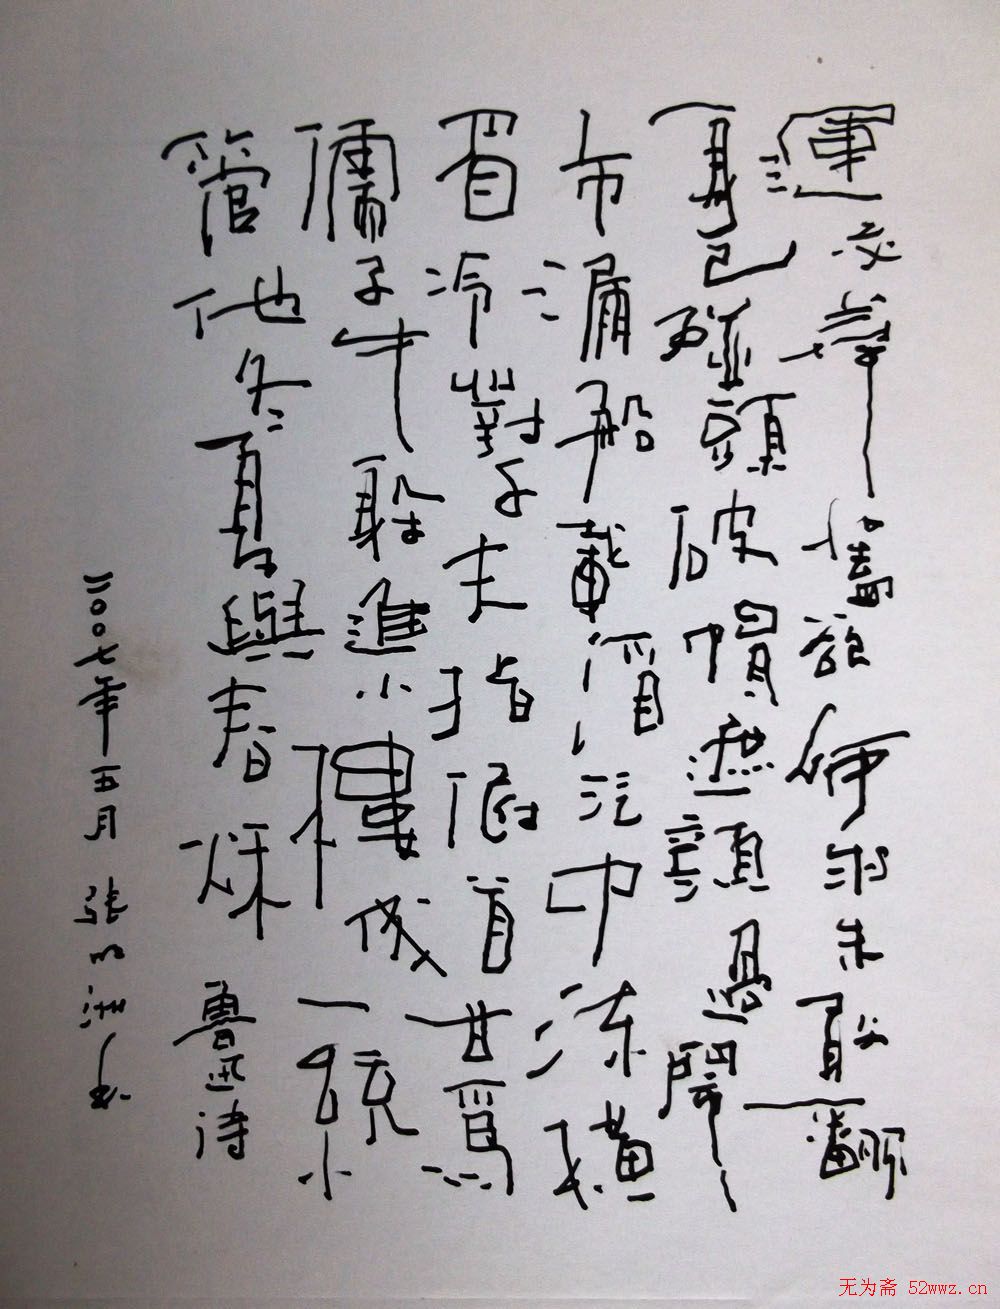 運交華蓋欲何求未敢翻
身已碰頭破帽遮顏過鬧
市漏船載酒泛中流橫
眉冷對千夫指俯首甘為
孺子牛躲進小樓成一統
管他冬夏與春秋 魯迅詩
二〇〇七年五月 張
无为斋 52wwz.cn